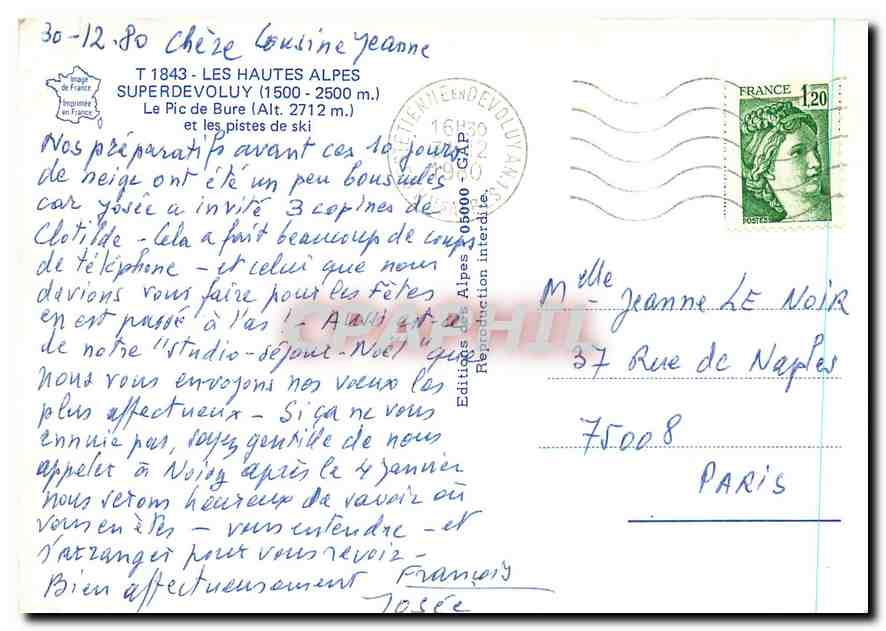 30-12.80 Chère Cousine Jeanne
Image de France
Imprimée en France
T 1843 - LES HAUTES ALPES
SUPERDEVOLUY (1500 - 2500 m.)
Le Pic de Bure (Alt. 2712 m.)
et les pistes de ski
Nos préparatifs avant ces 10 jours
de neige ont été un peu bousculés
car Josée a invité 3 copines de
Clotilde - Cela a fait beaucoup de coups
de téléphone - et celui que nous
devions vous faire pour les Fêtes
en est passé à l'as ! - Aussi est-ce
de notre "studio-séjour-Noël" que
nous vous envoyons nos voeux les
plus affectueux - Si ça ne vous
ennuie pas, soyez gentille de nous
appeler à Noisy après le 4 janvier
nous serons heureux de savoir où
vous en êtes - vous entendre - et
s'arranger pour vous revoir -
Bien affectueusement François
Josée
Editions des Alpes - 05000 - GAP
Reproduction interdite.
ST ETIENNE EN DEVOLUY
16H30
1980
FRANCE
1,20
POSTES
Melle Jeanne LE NOIR
37 Rue de Naples
75008
PARIS
CPAPHIL